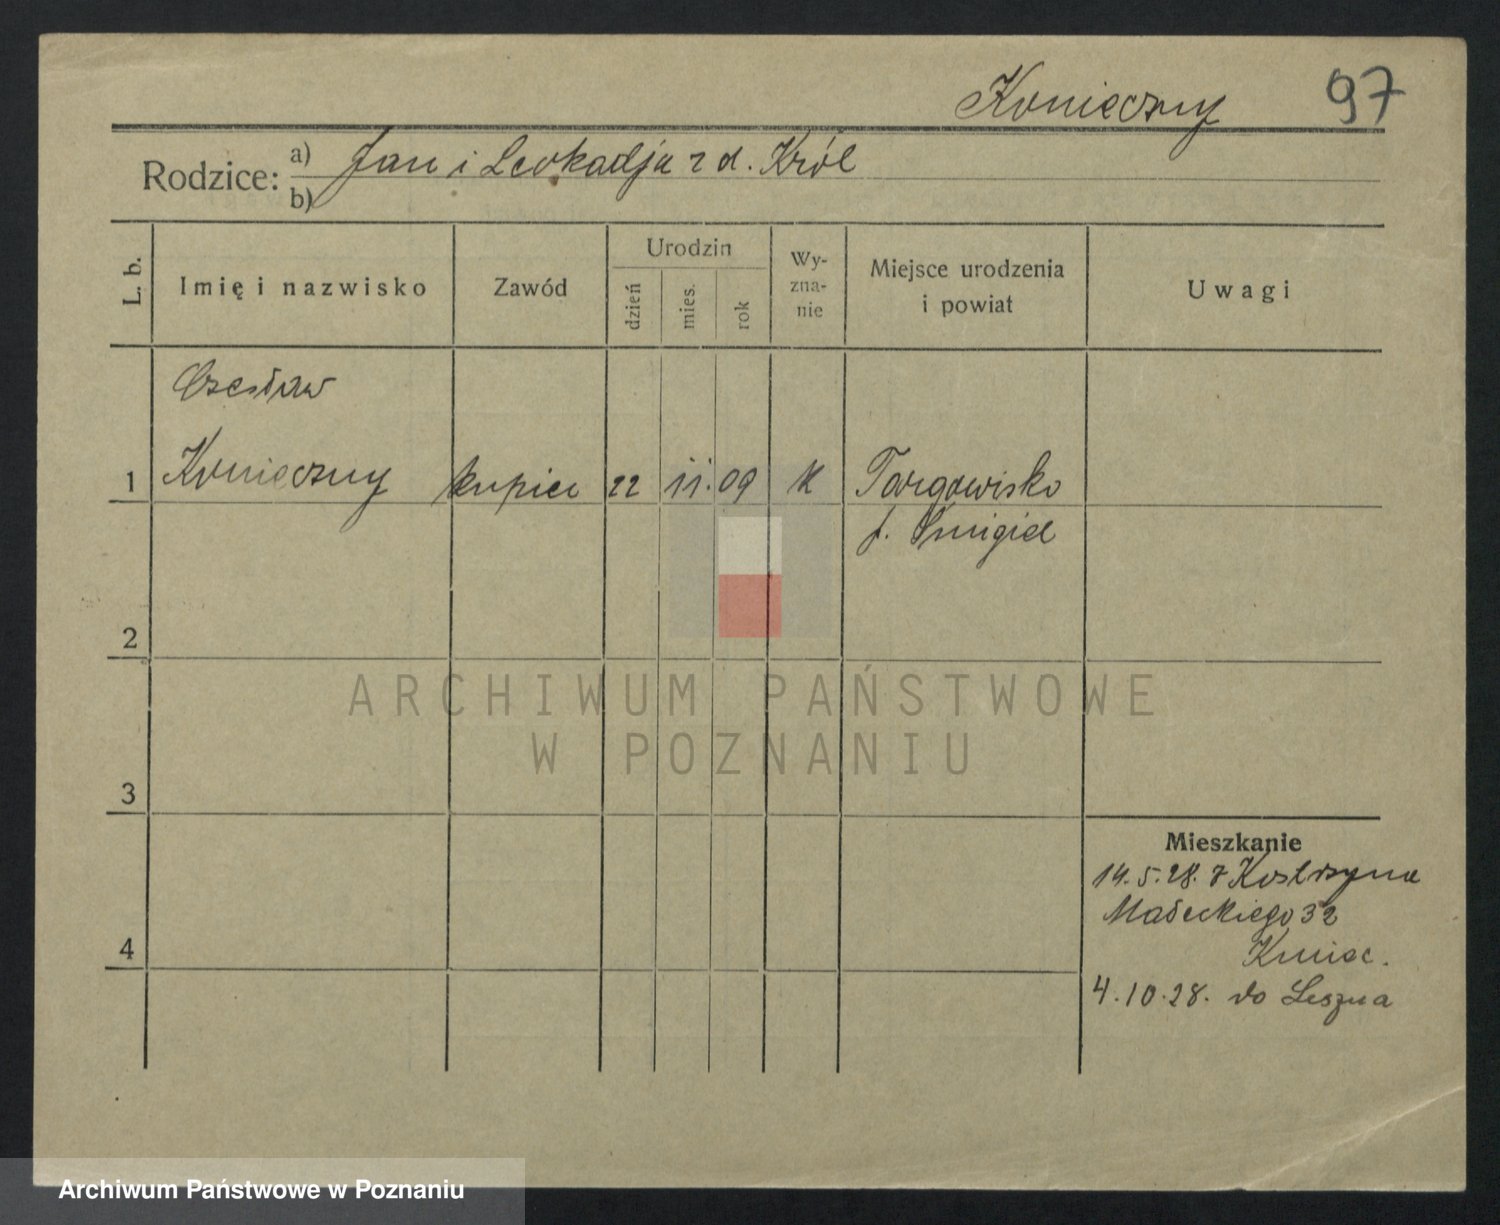 Konieczny 97
Rodzice: a) Jan i Leokadja z d. Król
b)
L. b. Imię i nazwisko Zawód Urodzin dzień mies. rok Wy-zna-nie Miejsce urodzenia i powiat Uwagi
Czesław
1 Konieczny kupiec 22 11. 09 K Targowisko
p. Śmigiel
2
ARCHIWUM PAŃSTWOWE
W POZNANIU
3
Mieszkanie
14.5.28. z Kostrzyna
Małeckiego 32
4
4.10.28. do Leszna
Archiwum Państwowe w Poznaniu